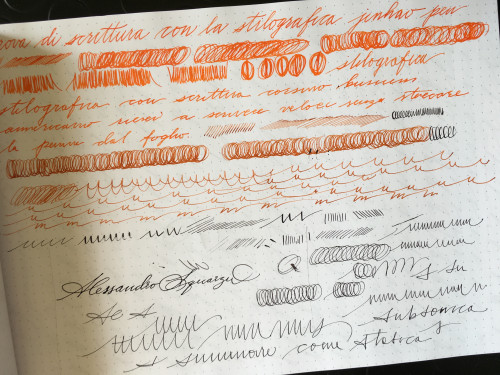 prova di scrittura con la stilografica jinhao pen
stilografica
stilografica con scrittura corsivo business
americano riesci a scrivere veloci senza staccare
la penna dal foglio.
Alessandro Squarzi
subsonica
come statica